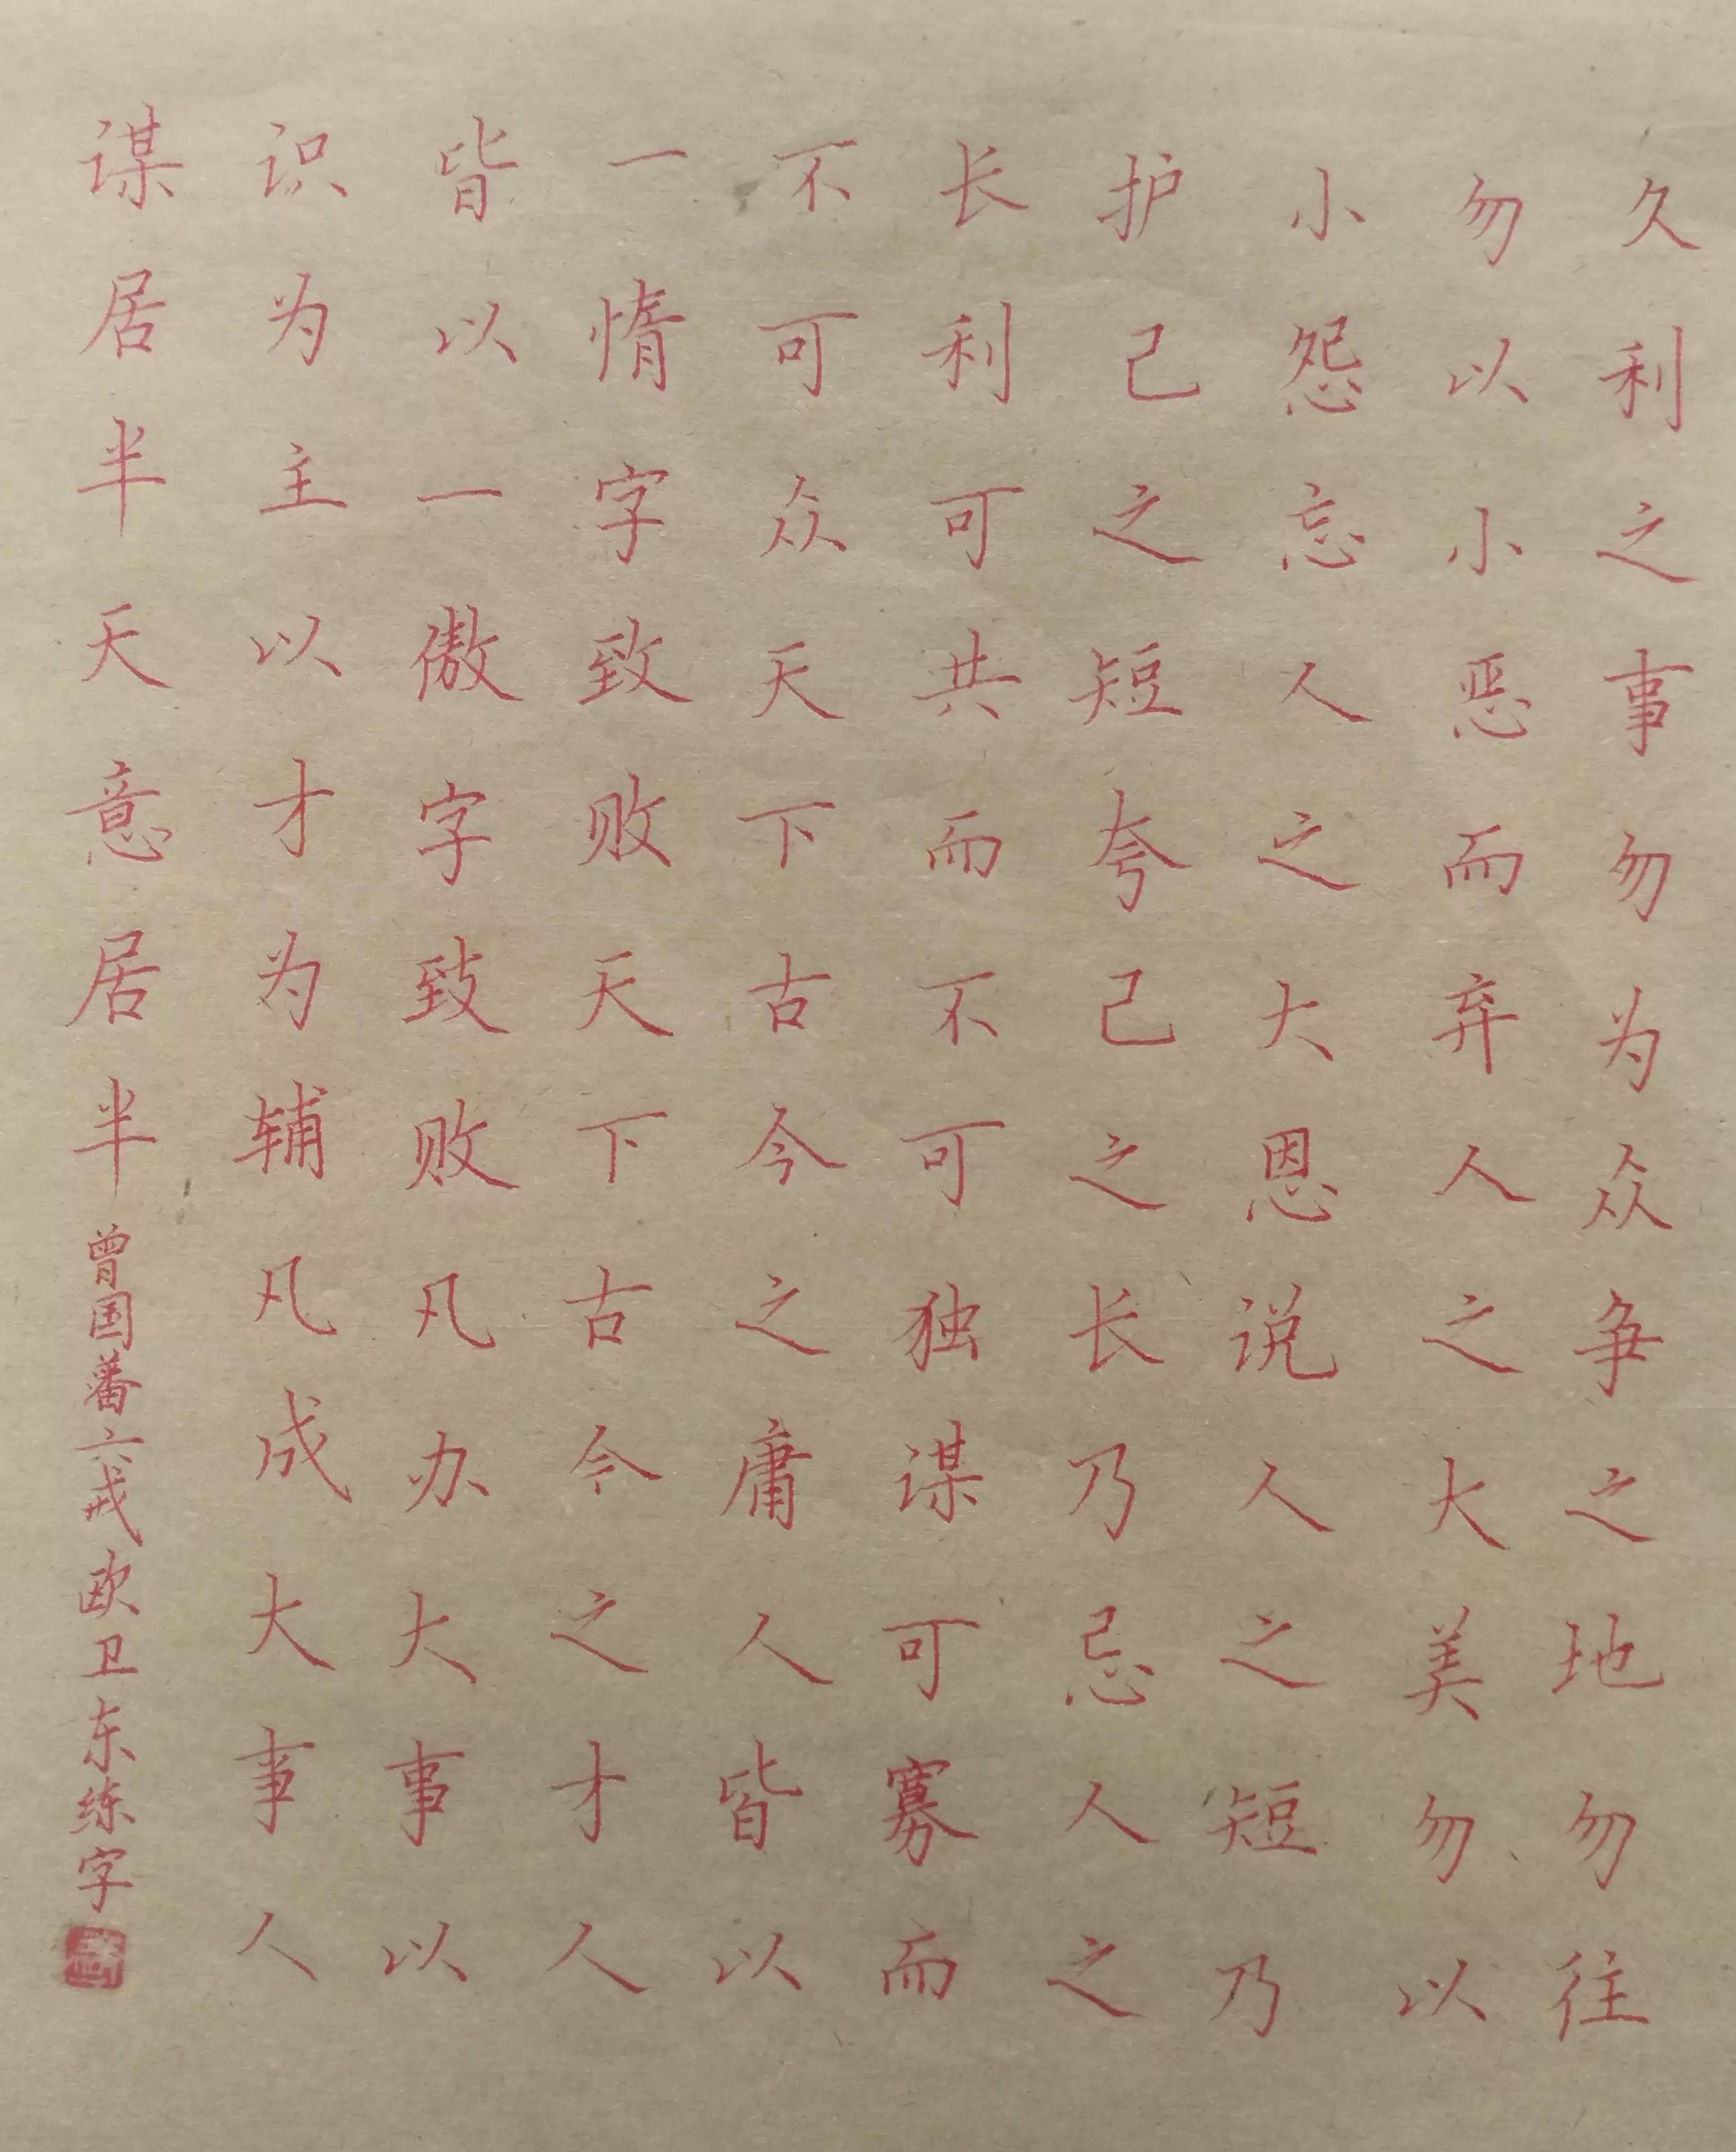 久利之事勿为众争之地勿往
勿以小恶而弃人之大美勿以
小怨忘人之大恩说人之短乃
护己之短夸己之长乃忌人之
长利可共而不可独谋可寡而
不可众天下古今之庸人皆以
一惰字致败天下古今之才人
皆以一傲字致败凡办大事以
识为主以才为辅凡成大事人
谋居半天意居半
曾国藩六戒欧卫东练字